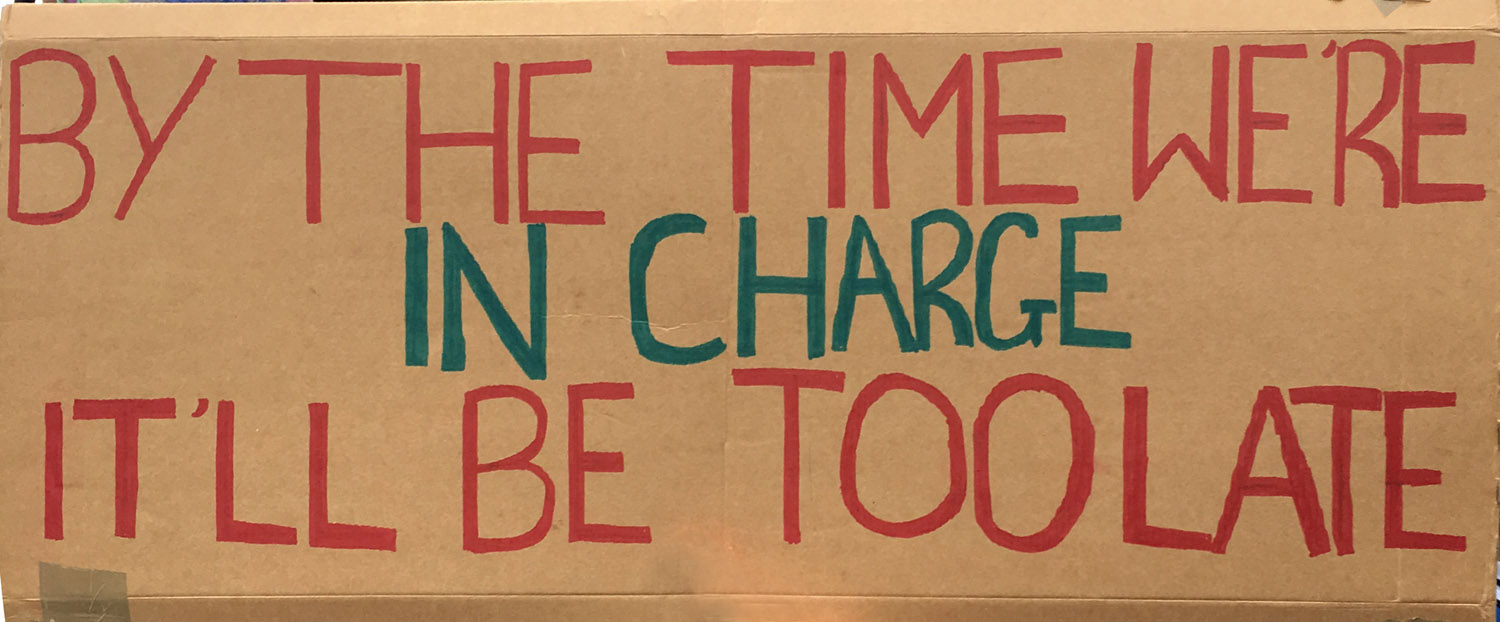 BY THE TIME WE'RE
IN CHARGE
IT'LL BE TOO LATE